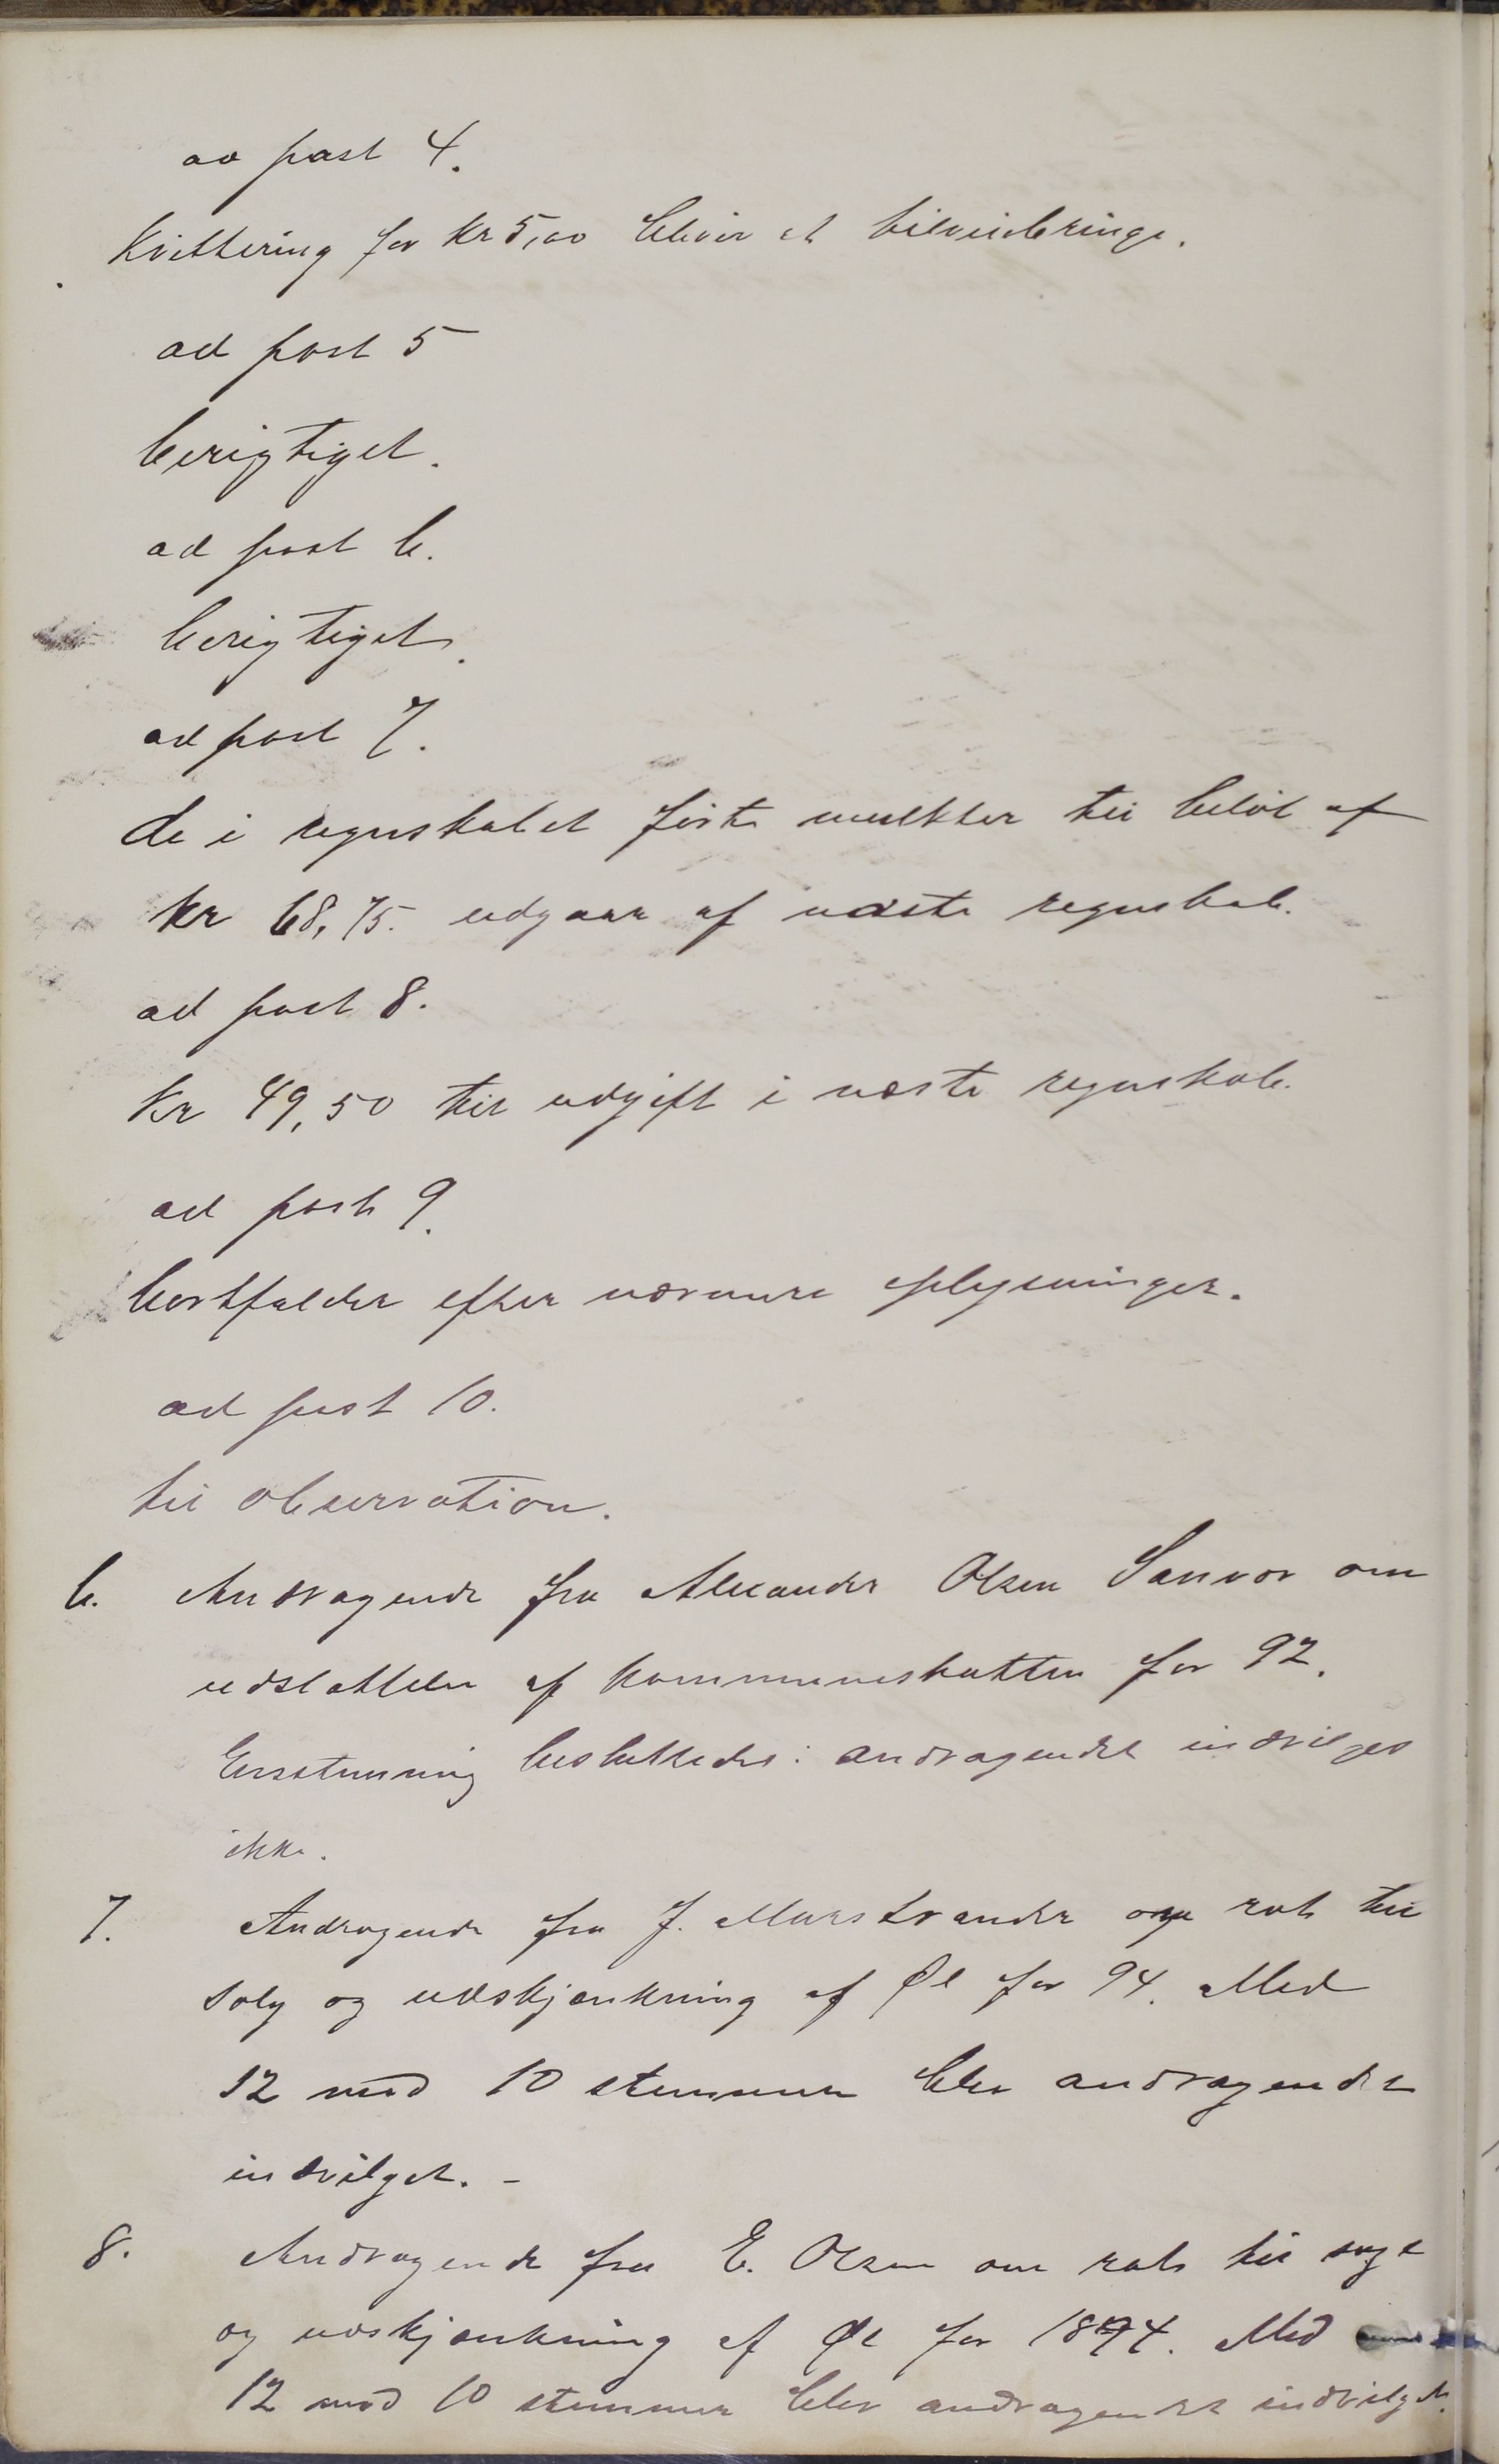 ad post 4.
Kvittering for Kr 5,00 bliver at tilveiebringe.
ad post 5
berigtiget.
ad post 6.
berigtiget.
ad post 7.
de i regnskabet förte mulkter til belöb af
Kr 68,75. udgaar af næste regnskab.
ad post 8.
Kr 49,50 til udgift i næste regnskab.
ad post 9.
bortfalder efter nærmere oplysninger.
ad post 10.
til observation.
6. Andragende fra Alexander Olsen Sanvor om
udslettelse af kommuneskatten for 92.
Enstemmig besluttedes: andragendet indvilges
ikke.
7. Andragende fra J. Marstrander om ret til
salg og udskjænkning af Øl for 94. Med
12 mod 10 stemmer blev andragendet
indvilget. -
8. Andragende fra E. Olsen om ret til salg
og udskjænkning af Øl for 1894. Med
12 mod 10 stemmer blev andragendet indvilget.